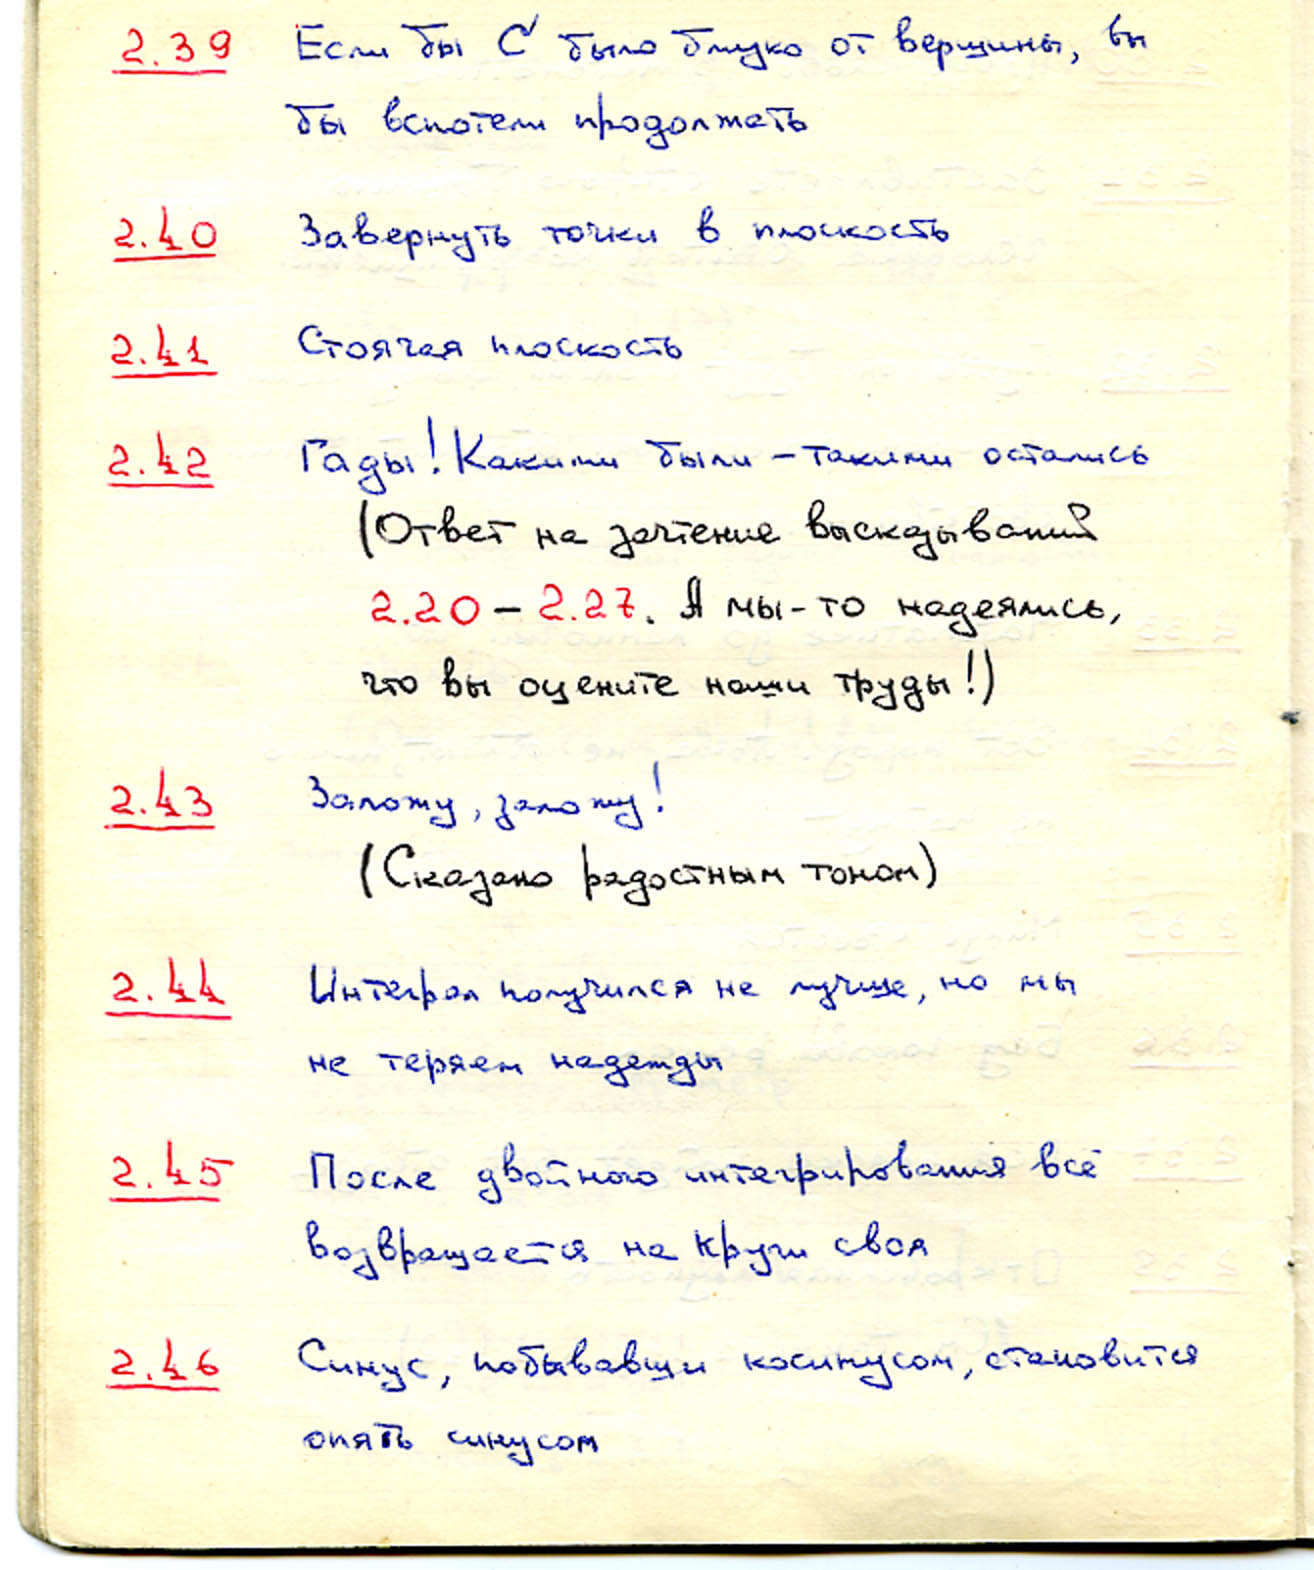 2.39 Если бы C было близко от вершины, вы
бы вспотели продолжать
2.40 Завернуть точки в плоскость
2.41 Стоячая плоскость
2.42 Гады! Какими были – такими остались
(Ответ на зачтение высказываний
2.20 – 2.27. А мы-то надеялись,
что вы оцените наши труды!)
2.43 Заложу, заложу!
(Сказано радостным тоном)
2.44 Интеграл получился не лучше, но мы
не теряем надежды
2.45 После двойного интегрирования всё
возвращается на круги своя
2.46 Синус, побывавши косинусом, становится
опять синусом